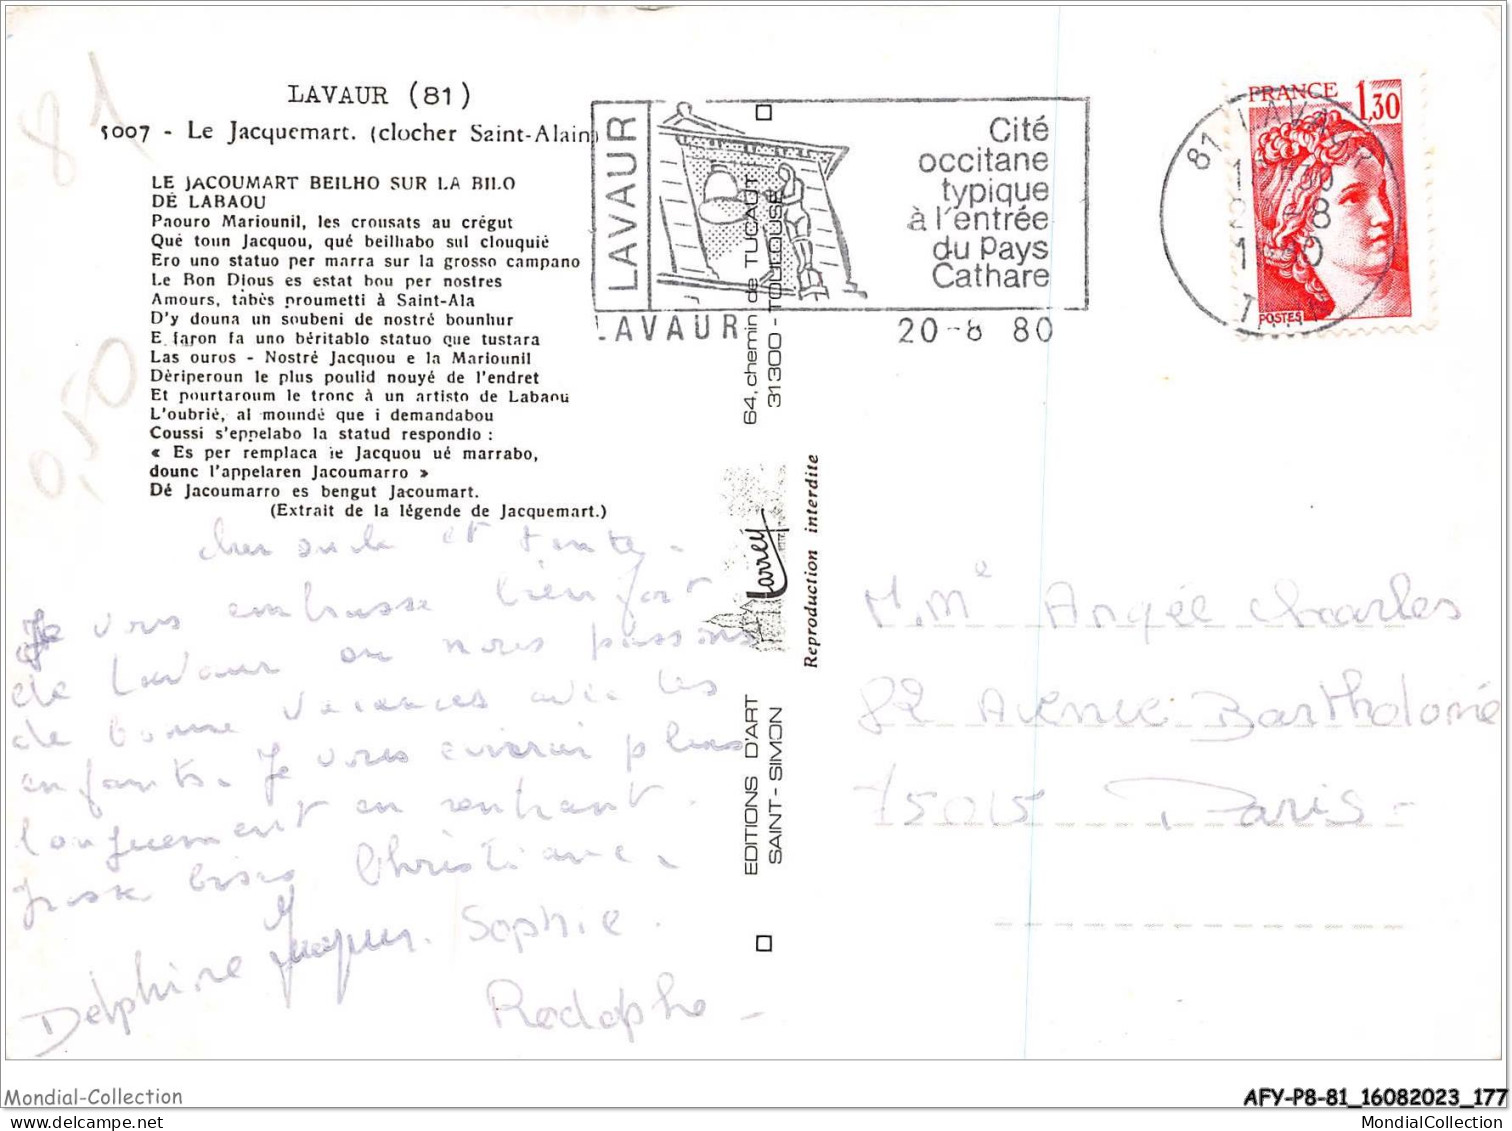 LAVAUR (81)
5007 - Le Jacquemart. (clocher Saint-Alain)
LE JACOUMART BEILHO SUR LA BILO
DÉ LABAOU
Paouro Mariounil, les crousats au crégut
Qué toun Jacquou, qué beilhabo sul clouquié
Ero uno statuo per marra sur la grosso campano
Le Bon Dious es estat bou per nostres
Amours, tàbès proumetti à Saint-Ala
D'y douna un soubeni de nostré bounhur
E faron fa uno béritablo statuo que tustara
Las ouros - Nostré Jacquou e la Mariounil
Dèriperoun le plus poulid nouyé de l'endret
Et pourtaroum le tronc à un artisto de Labaou
L'oubrié, al moundé que i demandabou
Coussi s'eppelabo la statud respondio :
« Es per remplaca le Jacquou ué marrabo,
dounc l'appelaren Jacoumarro »
Dé Jacoumarro es bengut Jacoumart.
(Extrait de la légende de Jacquemart.)
81
0,50
cher oncle et tante.
Je vous embrasse bien fort
de Lavaur ou nous passons
de bonne vacances avec les
enfants. Je vous écrirai plus
longuement en rentrant.
gross bises Christiane.
Jacques. Sophie.
Delphine
Rodolphe
LAVAUR
Cité
occitane
typique
à l'entrée
du Pays
Cathare
LAVAUR 20-8 80
64, chemin de TUCAUT
31300 - TOULOUSE
Larrey
Reproduction interdite
EDITIONS D'ART
SAINT-SIMON
FRANCE 1,30
POSTES
81 LAVAUR
TARN
M.Mᵉ Angée Charles
82 Avenue Bartholomé
75015 Paris-
Mondial-Collection
AFY-P8-81_16082023_177
MondialCollection